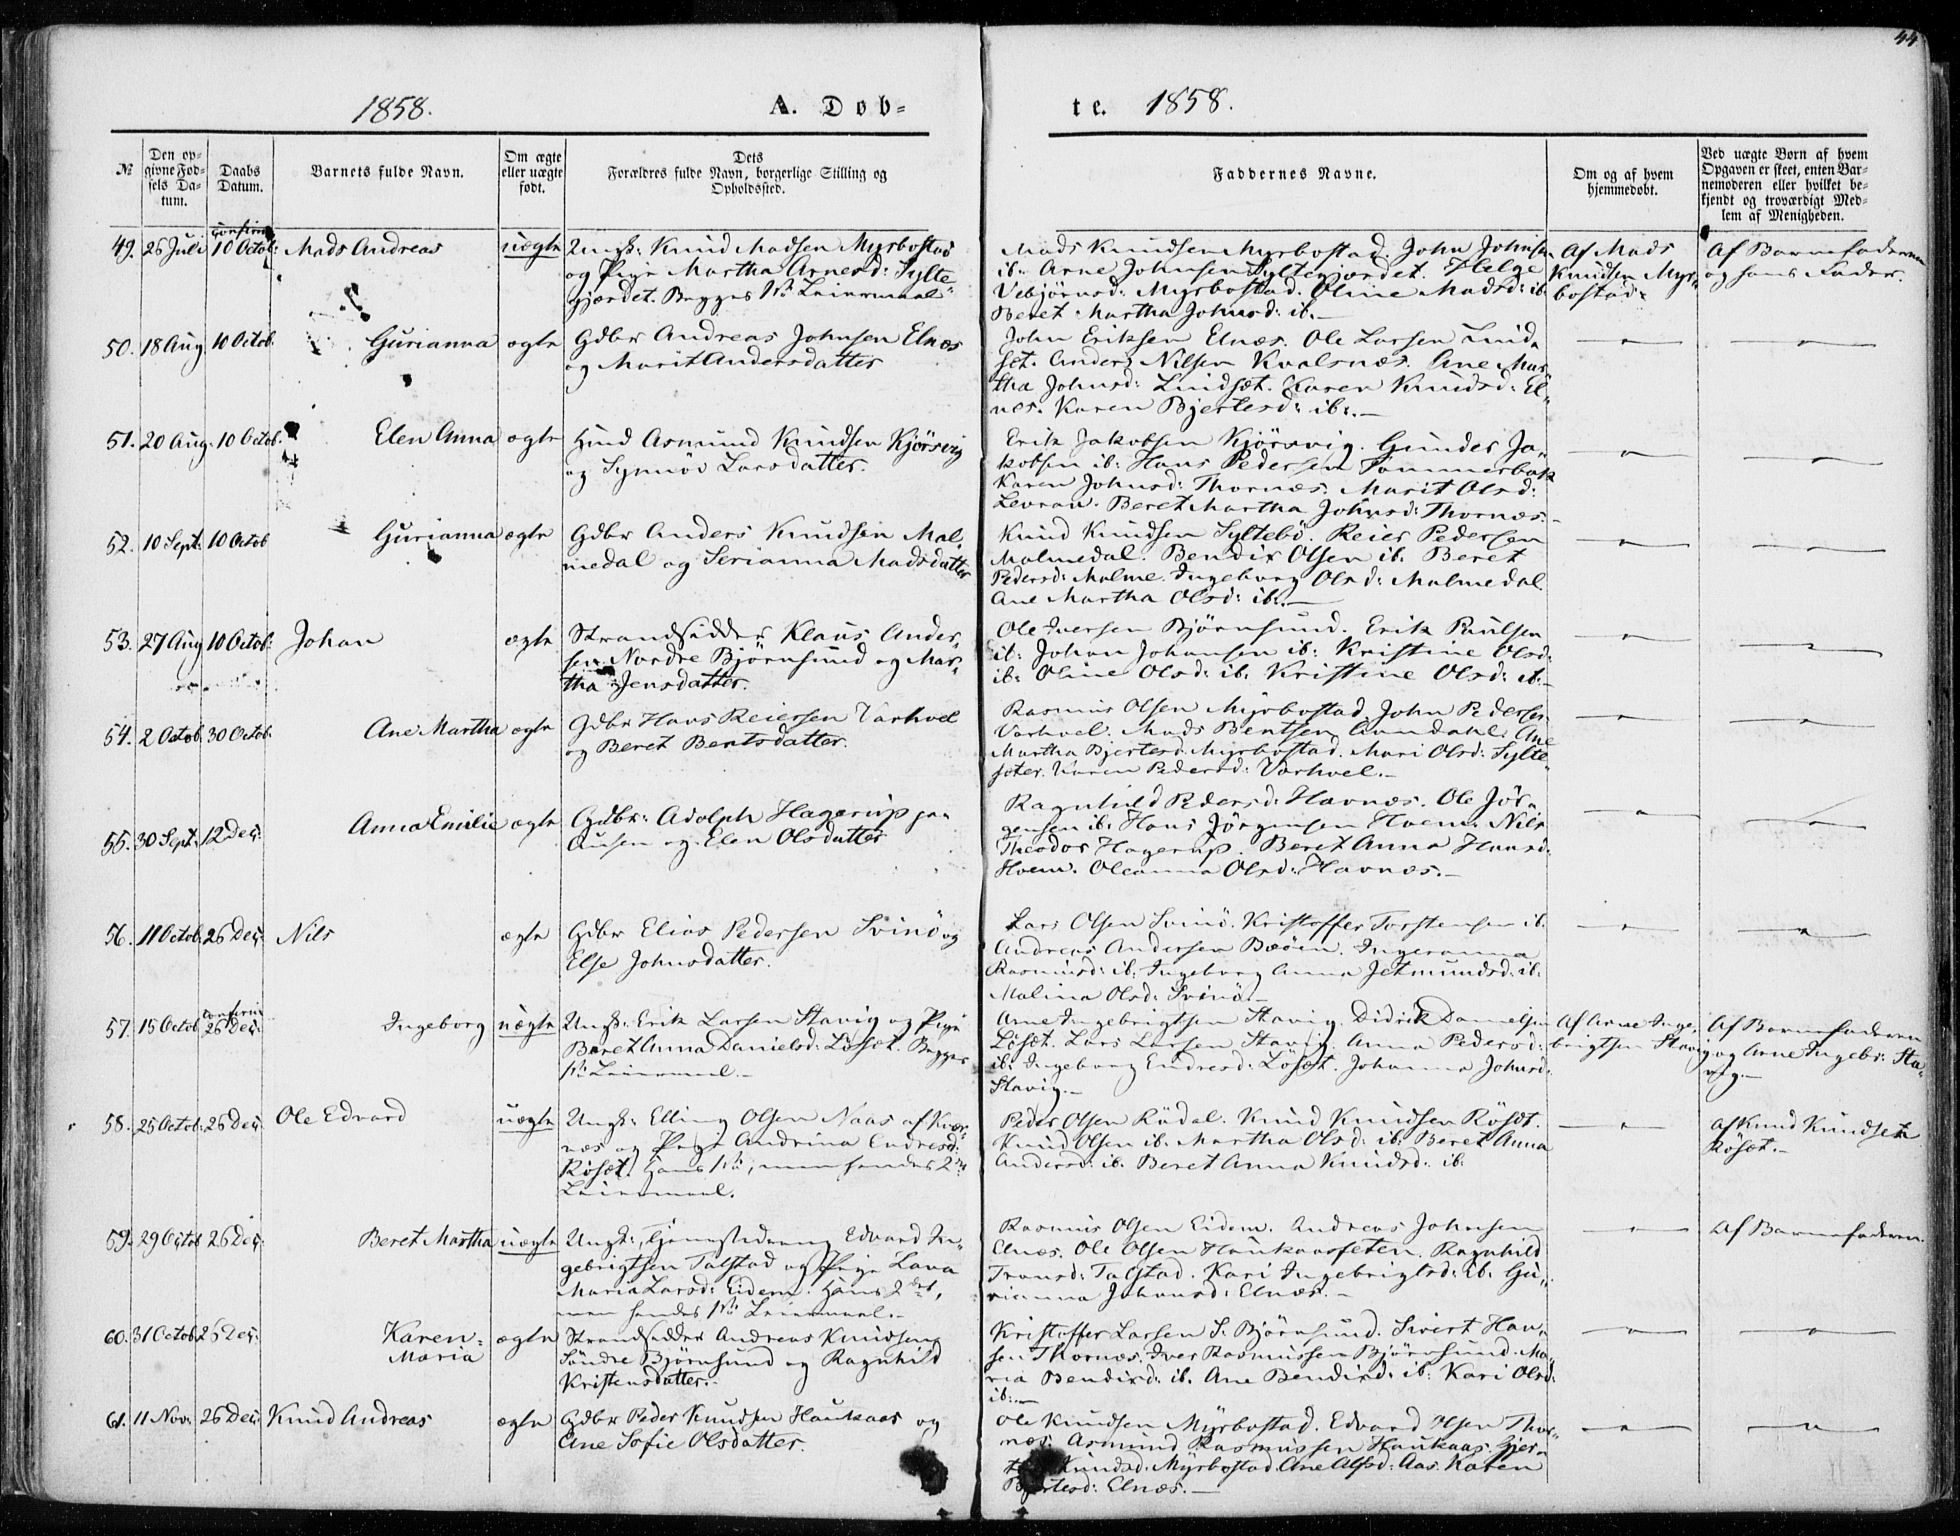 44
1858. A. Døb-
te. 1858.
№
Den op-
givne Fød-
sels Da-
tum.
Daabs
Datum.
Barnets fulde Navn.
Om ægte
eller uægte
født.
Dets
Forældres fulde Navn, borgerlige Stilling og
Opholdssted.
Faddernes Navne.
Om og af hvem
hjemmedøbt.
Ved uægte Børn af hvem
Opgaven er skeet, enten Bar-
nemoderen eller hvilket be-
kjendt og troværdigt Med-
lem af Menigheden.
confirm
49. 26 Juli 10 Octob: Mads Andreas uægte Ungk: Knud Madsen Myrbostad
og Pige Martha Arnesd: Sylte-
gjærdet. Begges 1ste Leiermaal
Mads Knudsen Myrbostad John Johnsen
ib: Arne Johnsen Syltegjærdet. Helge
Vebjørnsd: Myrbostad. Oline Madsd: ib:
Beret Martha Johnsd: ib.—
Af Mads
Knudsen Myr-
bostad.
Af Barnefaderen
og hans Fader.
50. 18 Aug. 10 Octob. Gurianna ægte Gdbr Andreas Johnsen Elnæs
og Marit Andersdatter
John Eriksen Elnæs. Ole Larsen Lind-
set. Anders Nilsen Kvalsnæs. Ane Mar-
tha Johnsd: Lindset. Karen Knudsd: El-
næs. Karen Bjertesd: ib:.—
51. 20 Aug. 10 Octob. Elen Anna ægte Huusmd Asmund Knudsen Kjørsvig
og Synnøv Larsdatter.
Erik Jakobsen Kjørsvig. Gunder Ja-
kobsen ib: Hans Pedersen Tommerbak
Karen Johnsd: Thornæs. Marit Olsd:
Levran. Beret Martha Johnsd: Thornæs.—
52. 10 Sept: 10 Octob Gurianna ægte Gdbr Anders Knudsen Mal-
medal og Serianna Madsdatter
Knud Knudsen Syltebø. Reier Pedersen
Malmedal. Bendix Olsen ib. Beret
Pedersd: Malme. Ingeborg Olsd: Malmedal.
Ane Martha Olsd: ib:.—
53. 27 Aug 10 Octob: Johan ægte Strandsidder Klaus Ander-
sen Nordre Bjørnsund og Mar-
tha Jensdatter.
Ole Iversen Bjørnsund. Erik Paulsen
ib: Johan Johansen ib: Kristine Olsd:
ib: Oline Olsd: ib. Kristine Olsd: ib.—
54. 2 Octob. 30 Octob. Ane Martha ægte Gdbr Hans Reiersen Varhvel
og Beret Bentsdatter.
Rasmus Olsen Myrbostad John Pedersen
Varhvel. Mads Bentsen Aandahl. Ane
Martha Bjertesd. Myrbostad. Mari Olsd: Sylte-
seter. Karen Pedersd: Varhvel.—
55. 30 Sept. 12 Dec: Anna Emilie ægte Gdbr: Adolph Hagerup
og Elen Olsdatter
Ragnhild Pedersd: Havnæs. Ole Jør-
gensen ib: Hans Jørgensen Hoem. Nils
Theodor Hagerup. Beret Anna Hansd:
Hoem. Oleanna Olsd: Havnæs.—
56. 11 Octob. 26 Dec: Nils ægte Gdbr Elias Pedersen Svinø og
Else Johnsdatter.
Lars Olsen Svinø. Kristoffer Torstensen ib.
Andreas Andersen Bøøen. Ingeranna
Rasmusd: ib: Ingeborg Anna Jetmundsd: ib:
Malina Olsd: Svinø.—
confirm
57. 15 Octob. 26 Dec: Ingeborg uægte Ungk: Erik Larsen Stavig og Pige
Beret Anna Danielsd: Løset. Begges
1ste Leiermaal.—
Arne Ingebrigtsen Stavig. Didrik Danielsen
Løset. Lars Larsen Stavig. Anna Pedersd:
ib: Ingeborg Endresd: Løset. Johanna Johnsd:
Stavig.—
Af Arne Inge-
brigtsen Stavig
Af Barnefaderen
og Arne Ingebr: Sta-
vig.—
58. 25 Octob: 26 Dec: Ole Edvard uægte Ungk: Elling Olsen Naas af Kvær-
næs og Pige Andrina Endresd:
Røset. Hans 1ste, men hendes 2det
Leiermaal.
Peder Olsen Rødal. Knud Knudsen Røset.
Knud Olsen ib. Martha Olsd: ib. Beret Anna
Andersd: ib. Beret Anna Knudsd: ib.
Af Knud Knudsen
Røset.—
59. 29 Octob 26 Dec: Beret Martha uægte Ungk: Edvard In-
gebrigtsen Talstad og Pige Lava
Maria Larsd: Eidem. Hans 2det,
men hendes 1ste Leiermaal.—
Rasmus Olsen Eidem. Andreas Johnsen
Elnæs. Ole Olsen Haukaasseten. Ragnhild
Tronsd: Talstad. Kari Ingebrigtsd: ib. Gu-
rianna Johnsd: Elnæs.—
Af Barnefaderen.
60. 31 Octob 26 Dec: Karen
Maria
ægte Strandsidder Andreas Knudsen
Søndre Bjørnsund og Ragnhild
Kristensdatter.—
Kristoffer Larsen S. Bjørnsund. Sivert Han-
sen Thornæs. Iver Rasmussen Bjørnsund. Ma-
ria Bendixd: ib. Ane Bendixd: ib. Kari Olsd:
ib:—
61. 11 Nov: 26 Dec: Knud Andreas ægte Gdbr Peder Knudsen Haukaas og
Ane Sofie Olsdatter.
Ole Knudsen Myrbostad. Edvard Olsen Thor-
næs. Asmund Rasmussen Haukaas.
Knudsd: Myrbostad. Ane Olsd: Aas. Karen
Bjertesd: Elnæs.—